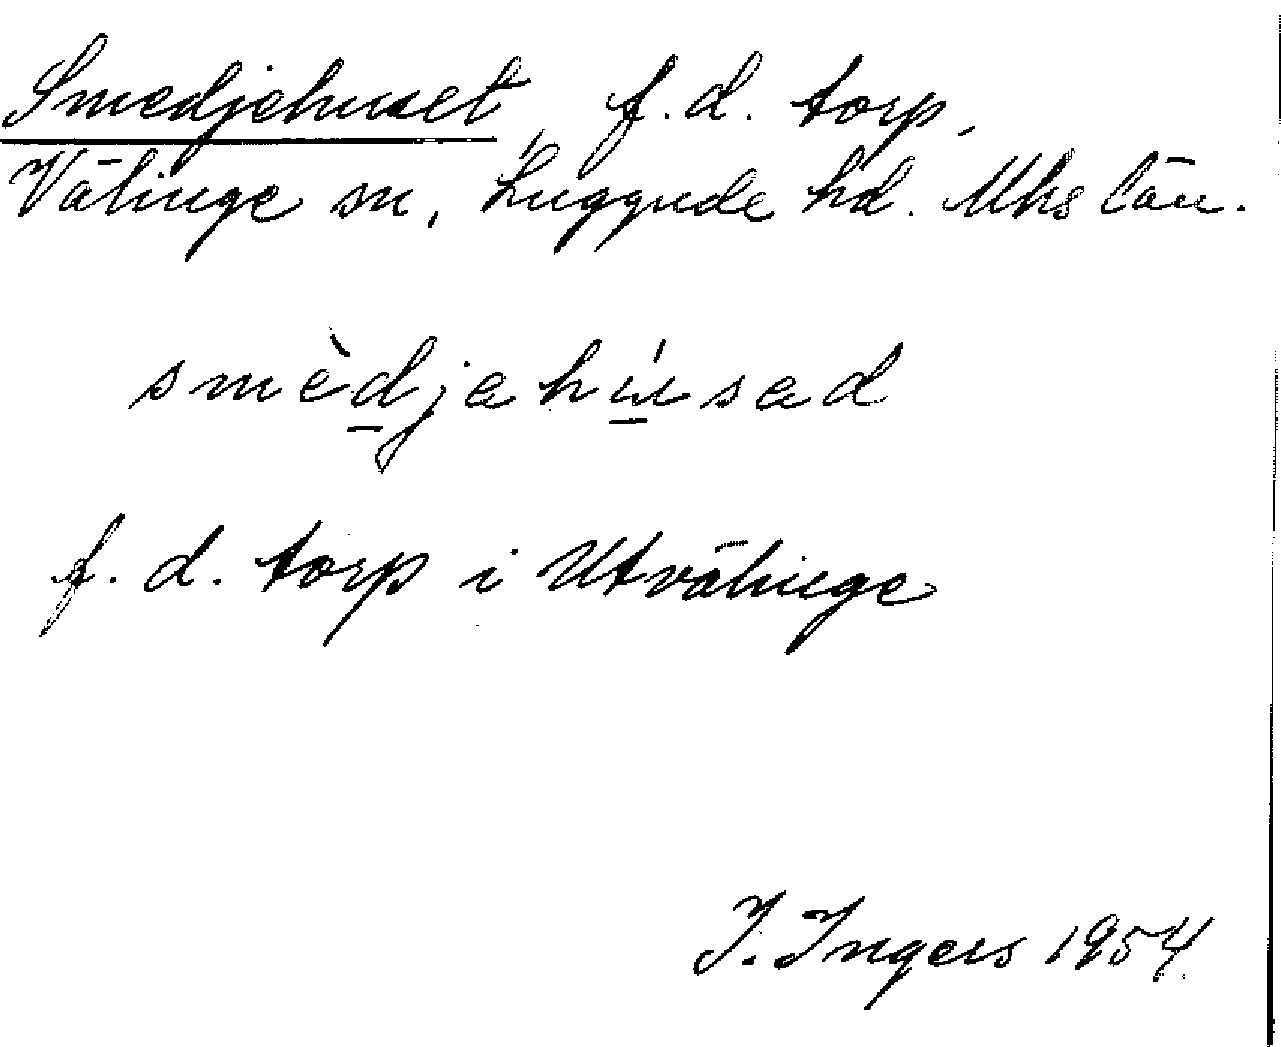 Smedjehuset, f.d. torp,
Välinge sn, Luggude hd. Mhs län.
smèdjahúsad
f.d. torp i Utvälinge
I. Ingers 1954.